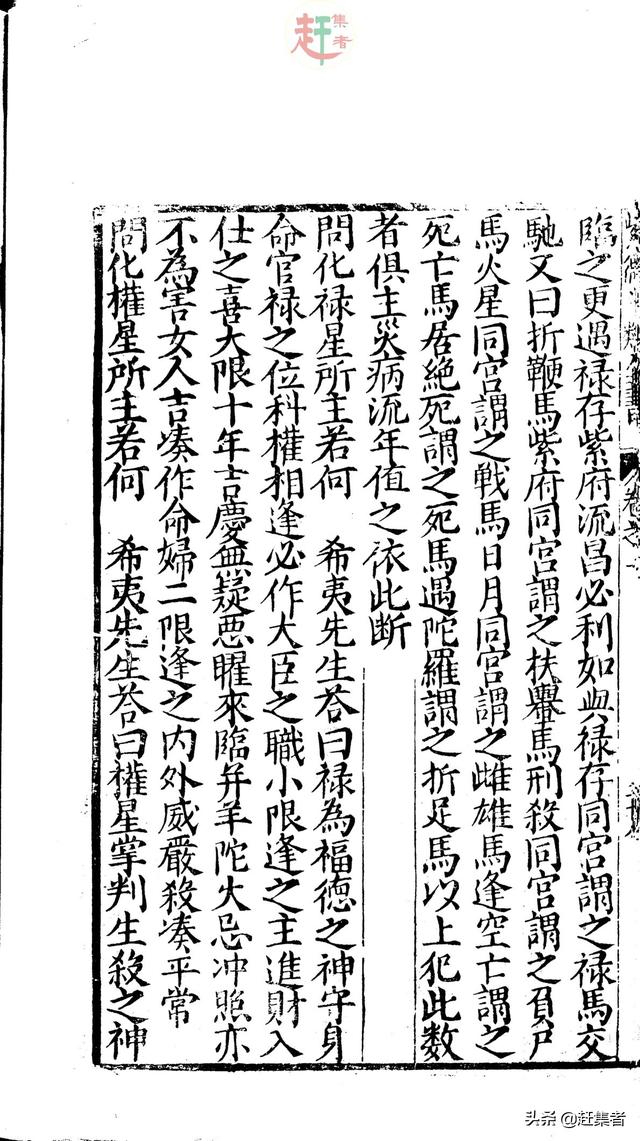 赶集者
臨之更遇禄存紫府流昌必利如與禄存同宫謂之禄馬交
馳又曰折鞭馬紫府同宫謂之扶轝馬刑殺同宫謂之負尸
馬火星同宫謂之戰馬日月同宫謂之雌雄馬逢空亡謂之
死亡馬居絶死謂之死馬遇陀羅謂之折足馬以上犯此數
者俱主災病流年值之依此断
問化禄星所主若何 希夷先生荅曰禄為福德之神守身
命官禄之位科權相逢必作大臣之職小限逢之主進財入
仕之喜大限十年吉慶無疑惡曜來臨并羊陀火忌冲照亦
不為害女人吉凑作命婦二限逢之内外威嚴殺凑平常
問化權星所主若何 希夷先生荅曰權星掌判生殺之神
头条 @赶集者